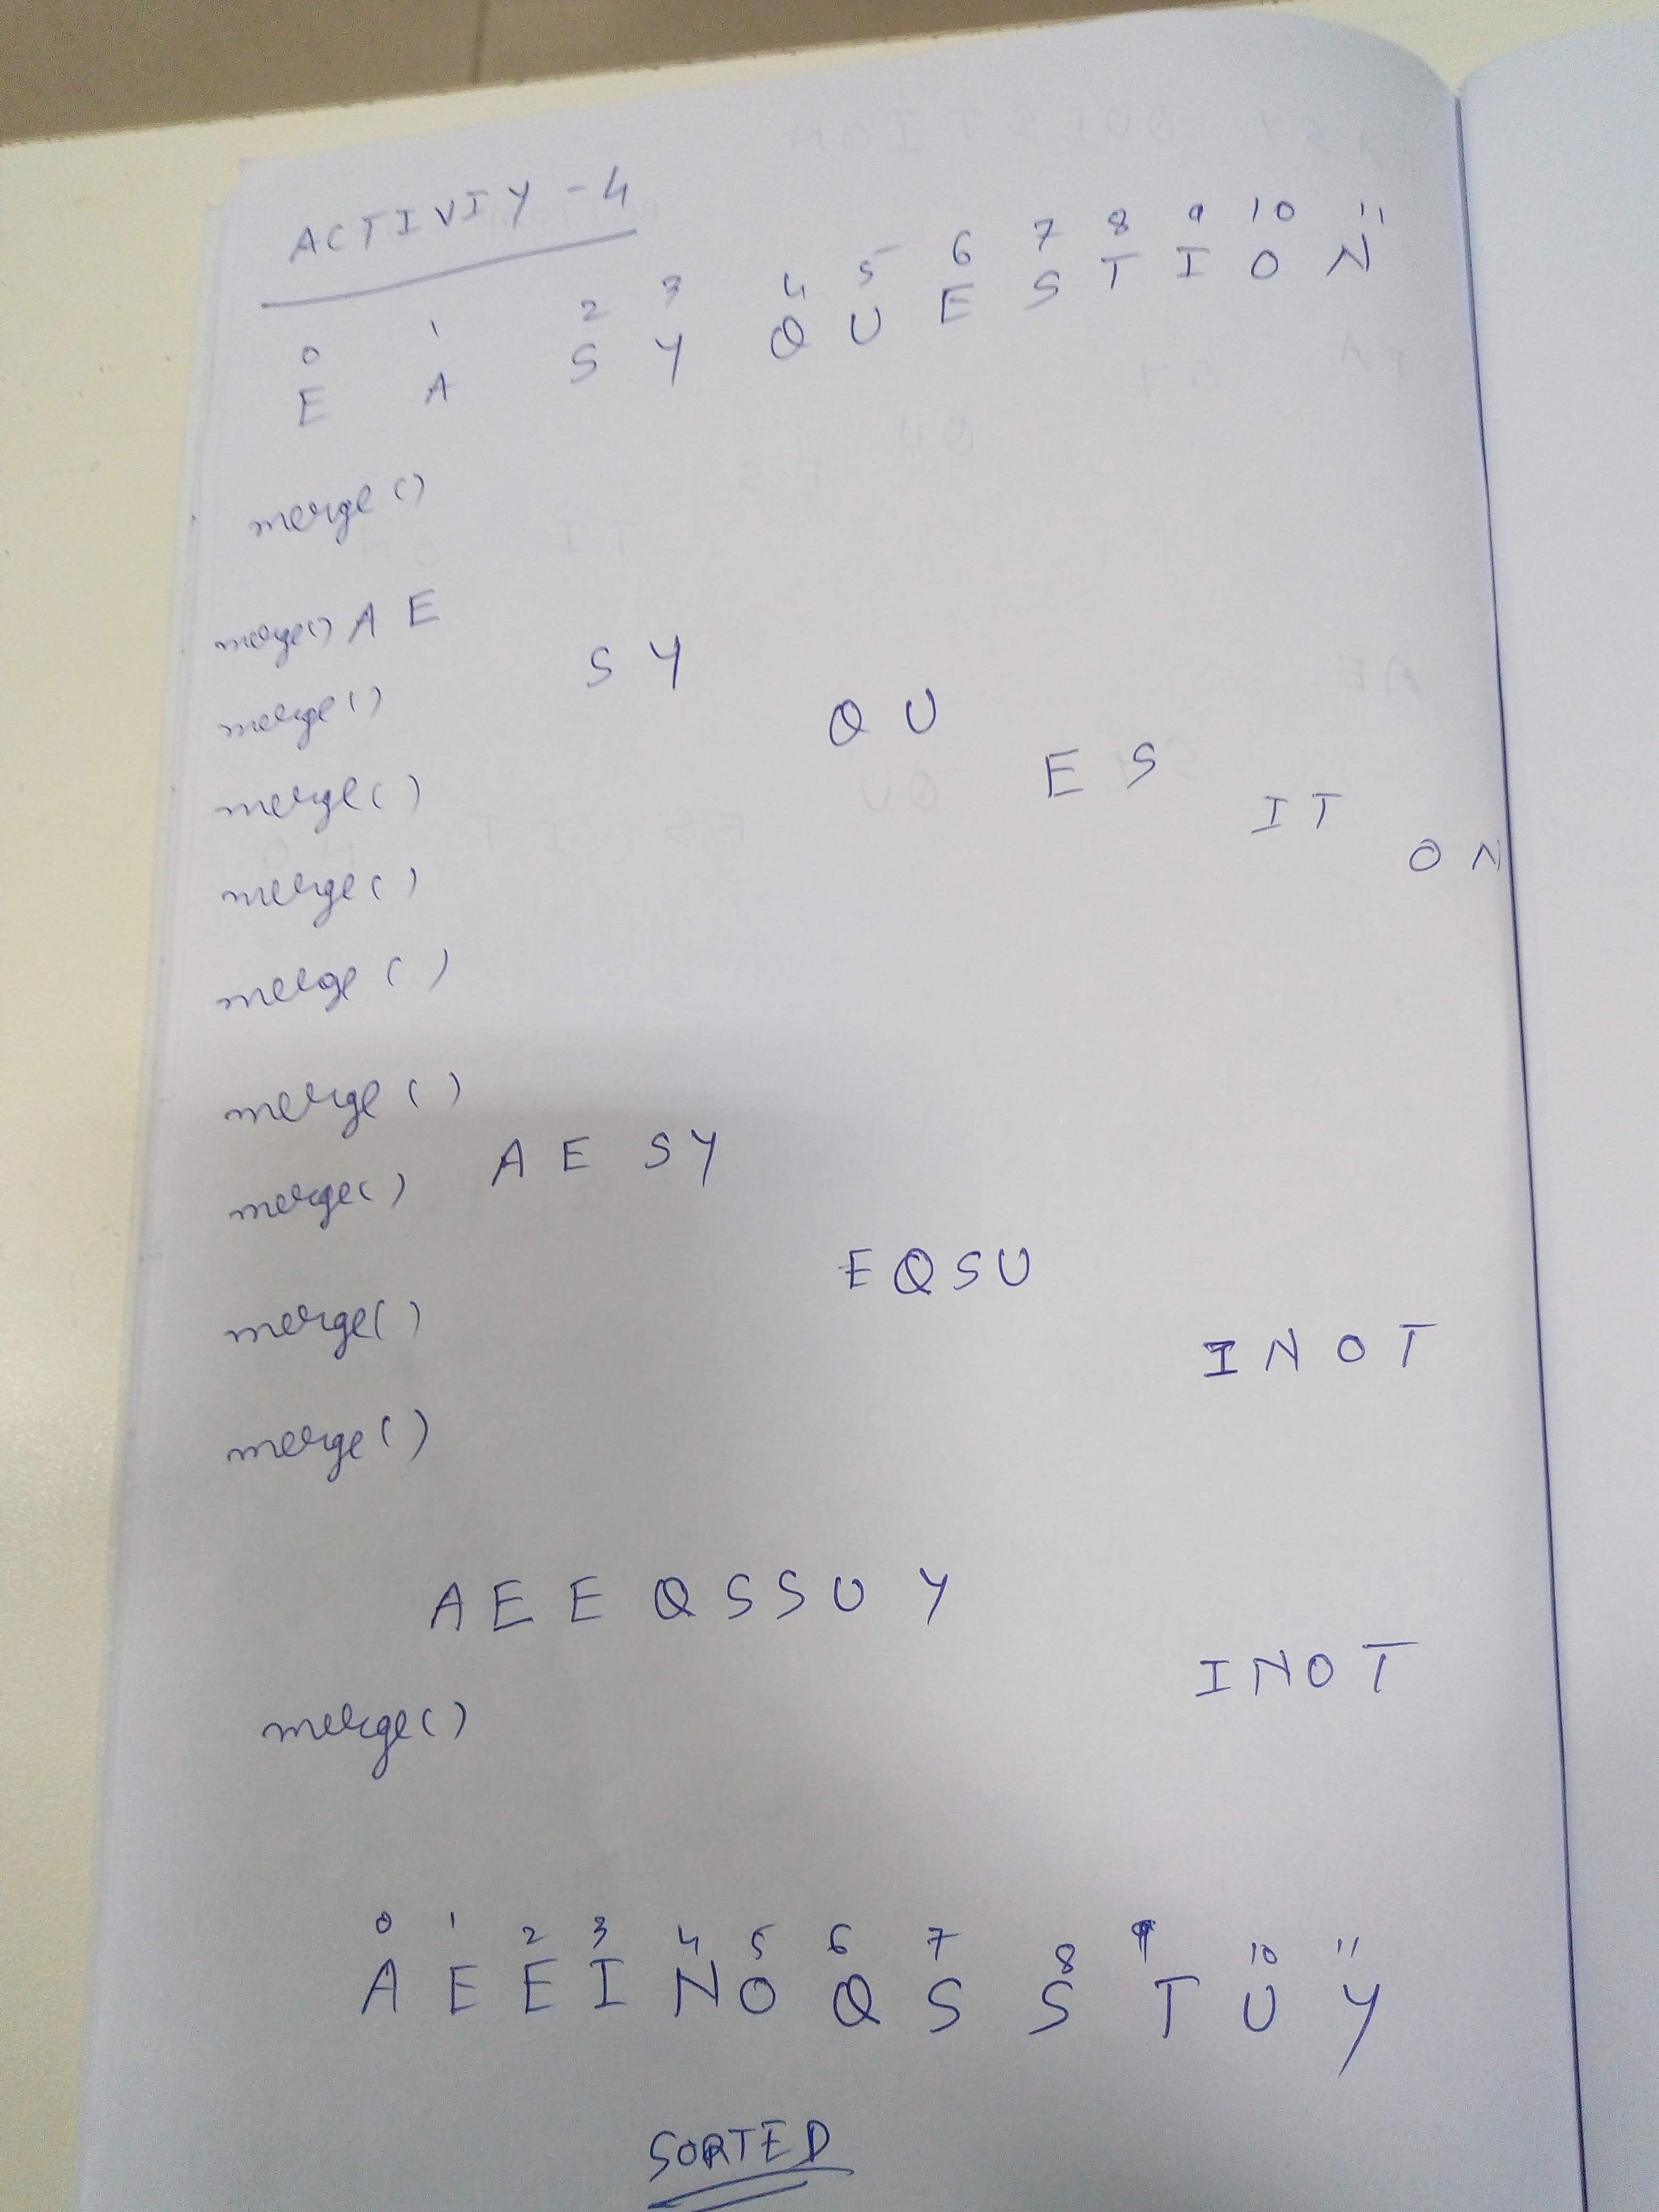 ACTIVIY - 4
0 1 2 3 4 5 6 7 8 9 10 11
E A S Y Q U E S T I O N
merge()
merge() A E
S Y
merge()
Q U
merge()
E S
I T
merge()
O N
merge()
merge()
A E S Y
merge()
E Q S U
merge()
I N O T
merge()
A E E Q S S U Y
I N O T
merge()
0 1 2 3 4 5 6 7 8 9 10 11
A E E I N O Q S S T U Y
SORTED